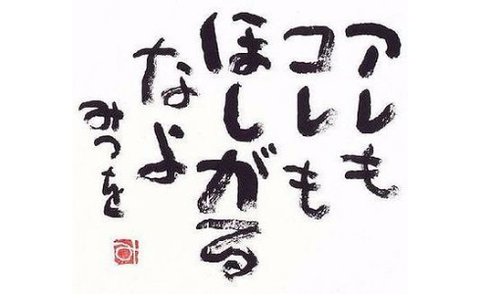 アレも
コレも
ほしがる
なよ
みつを